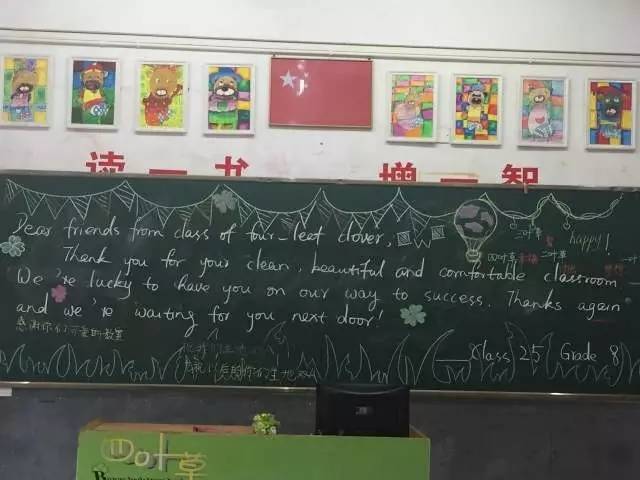 读一书 增一智
Dear friends from class of four-leef clover,
happy!
Thank you for your clean, beautiful and comfortable classroom
We're lucky to have you on our way to success. Thanks again
and we're waiting for you next door!
感谢你们可爱的教室
Class 25 Grade 8
四叶草